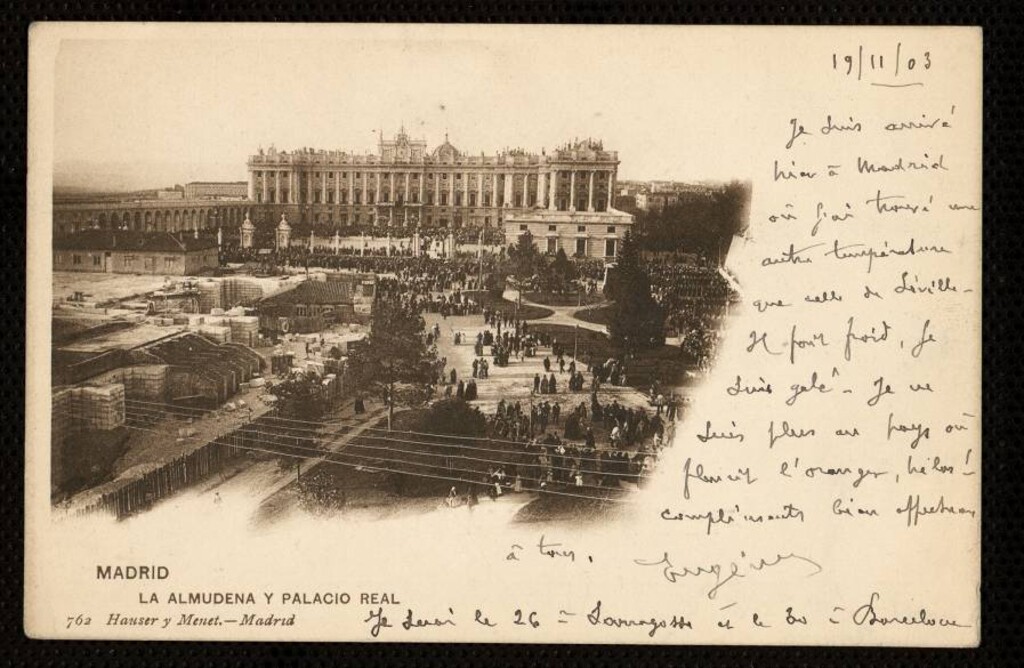 19/11/03
Je suis arrivé
hier à Madrid
où j'ai trouvé une
autre température
que celle de Séville -
Il fait froid, je
suis gelé - Je ne
suis plus au pays où
fleurit l'oranger, hélas!
compliments bien affectueux
à tous.
Eugénie
MADRID
LA ALMUDENA Y PALACIO REAL
762 Hauser y Menet.—Madrid
Je serai le 26 à Sarragosse et le 30 à Barcelone